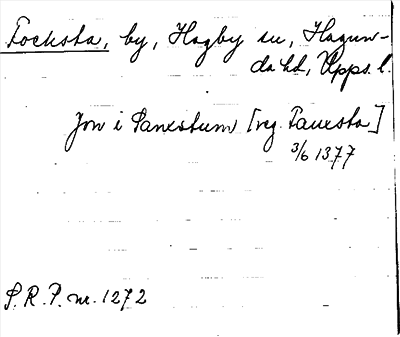 Focksta, by, Hagby sn, Hagun-
da hd, Upps. l.
Jon i Fanxstum [reg. Fanxsta]
3/6 1377
S.R.P. nr. 1272